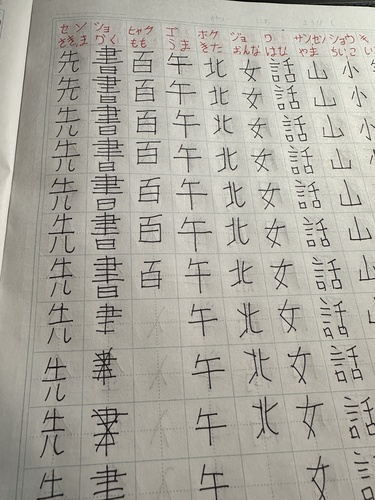 セン ショ ヒャク ゴ ホク ジョ ワ サンセン ショウ
さき,ま かく もも うま きた おんな はなし やま ちいさ
先 書 百 午 北 女 話 山 小
先 書 百 午 北 女 話 山 小
先 書 百 午 北 女 話 山 小
先 書 百 午 北 女 話 山
先 書 百 午 北 女 話 山
先 書 百 午 北 女 話 山
先 書 百 午 北 女 話 山
先 午 北 女 話
先 午 北 女 話
先 午 北 女 話
午 女 話